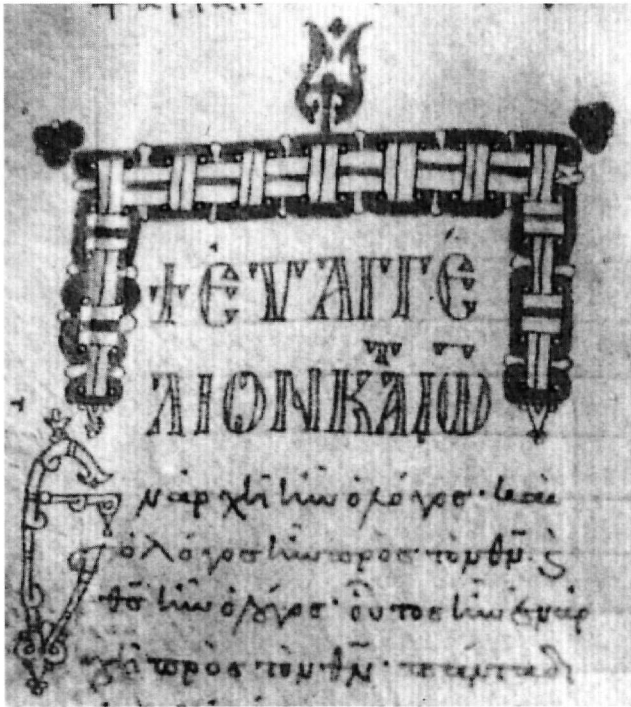 + ΕΥΑΓΓΕ
ΛΙΟΝ ΚΑΤ ΙΩ
Ἐν ἀρχῆ ἦν ὁ λόγος· καὶ
ὁ λόγος ἦν πρὸς τὸν θν̅· ϗ
θς̅ ἦν ὁ λόγος· οὗτος ἦν ἐν ἀρ
χῆ πρὸς τὸν θν̅· πάντα δι